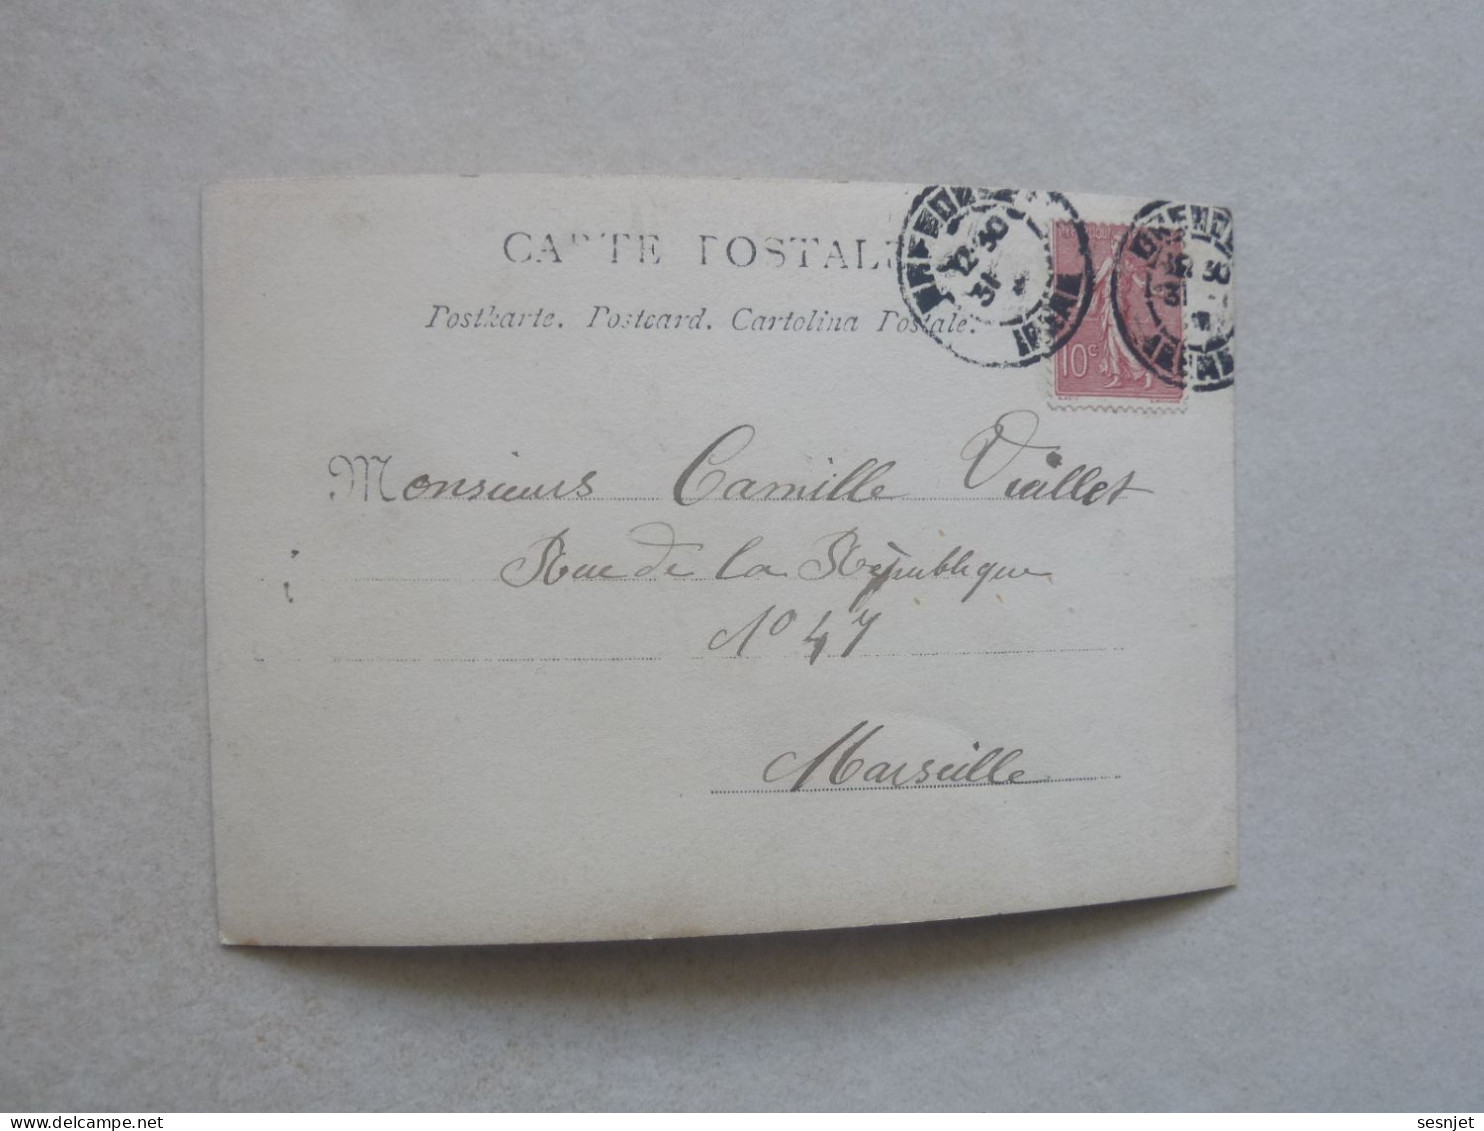 CARTE POSTALE
Postkarte. Postcard. Cartolina Postale.
12·30
31
30
31
10c
Monsieurs Camille Viallet
Rue de la République
No 47
Marseille
© delcampe.net
sesnjet